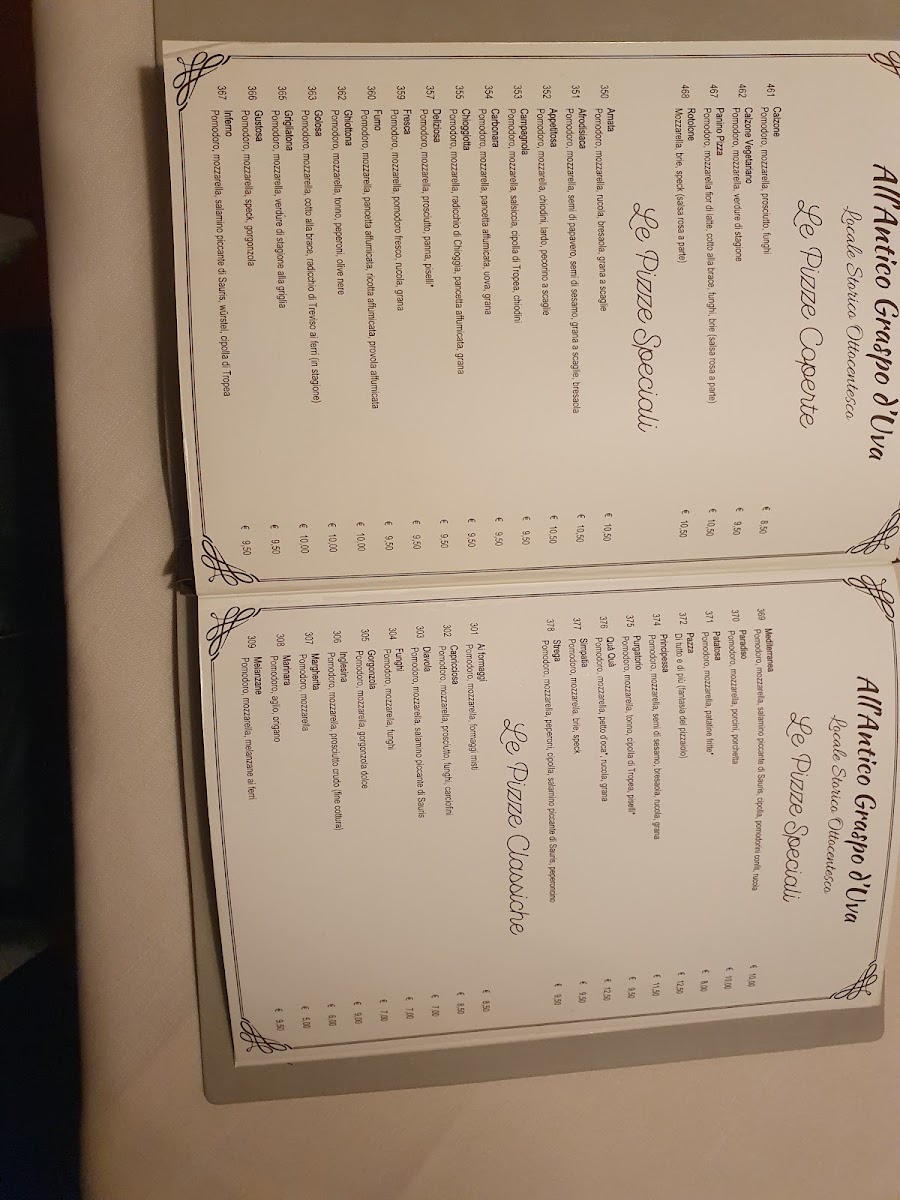 All'Antico Graspo d'Uva
Locale Storico Ottocentesco
Le Pizze Coperte
461 Calzone
Pomodoro, mozzarella, prosciutto, funghi € 8,50
462 Calzone Vegetariano
Pomodoro, mozzarella, verdure di stagione € 9,50
467 Panino Pizza
Pomodoro, mozzarella fior di latte, cotto alla brace, funghi, brie (salsa rosa a parte) € 10,50
468 Rotolone
Mozzarella, brie, speck (salsa rosa a parte) € 10,50
Le Pizze Speciali
350 Amata
Pomodoro, mozzarella, rucola, bresaola, grana a scaglie € 10,50
351 Afrodisiaca
Pomodoro, mozzarella, semi di papavero, semi di sesamo, grana a scaglie, bresaola € 10,50
352 Appetitosa
Pomodoro, mozzarella, chiodini, lardo, pecorino a scaglie € 10,50
353 Campagnola
Pomodoro, mozzarella, salsiccia, cipolla di Tropea, chiodini € 9,50
354 Carbonara
Pomodoro, mozzarella, pancetta affumicata, uova, grana € 9,50
355 Chioggiotta
Pomodoro, mozzarella, radicchio di Chioggia, pancetta affumicata, grana € 9,50
357 Deliziosa
Pomodoro, mozzarella, prosciutto, panna, piselli* € 9,50
359 Fresca
Pomodoro, mozzarella, pomodoro fresco, rucola, grana € 9,50
360 Fumo
Pomodoro, mozzarella, pancetta affumicata, ricotta affumicata, provola affumicata € 9,50
362 Ghiottona
Pomodoro, mozzarella, tonno, peperoni, olive nere € 10,00
363 Golosa
Pomodoro, mozzarella, cotto alla brace, radicchio di Treviso ai ferri (in stagione) € 10,00
365 Grigliatona
Pomodoro, mozzarella, verdure di stagione alla griglia € 10,00
366 Gustosa
Pomodoro, mozzarella, speck, gorgonzola € 9,50
367 Inferno
Pomodoro, mozzarella, salamino piccante di Sauris, würstel, cipolla di Tropea € 9,50
All'Antico Graspo d'Uva
Locale Storico Ottocentesco
Le Pizze Speciali
369 Mediterranea
Pomodoro, mozzarella, salamino piccante di Sauris, cipolla, pomodorini confit, rucola € 10,00
370 Paradiso
Pomodoro, mozzarella, porcini, porchetta € 10,00
371 Patatosa
Pomodoro, mozzarella, patatine fritte* € 8,00
372 Pazza
Di tutto e di più (fantasia del pizzaiolo) € 12,50
374 Principessa
Pomodoro, mozzarella, semi di sesamo, bresaola, rucola, grana € 11,50
375 Purgatorio
Pomodoro, mozzarella, tonno, cipolla di Tropea, piselli* € 9,50
376 Quà Quà
Pomodoro, mozzarella, petto d'oca*, rucola, grana € 12,50
377 Simpatia
Pomodoro, mozzarella, brie, speck € 9,50
378 Strega
Pomodoro, mozzarella, peperoni, cipolla, salamino piccante di Sauris, peperoncino € 9,50
Le Pizze Classiche
301 Ai formaggi
Pomodoro, mozzarella, formaggi misti € 8,50
302 Capricciosa
Pomodoro, mozzarella, prosciutto, funghi, carciofini € 8,50
303 Diavola
Pomodoro, mozzarella, salamino piccante di Sauris € 7,00
304 Funghi
Pomodoro, mozzarella, funghi € 7,00
305 Gorgonzola
Pomodoro, mozzarella, gorgonzola dolce € 7,00
306 Inglesina
Pomodoro, mozzarella, prosciutto crudo (fine cottura) € 9,00
307 Margherita
Pomodoro, mozzarella € 6,00
308 Marinara
Pomodoro, aglio, origano € 5,00
309 Melanzane
Pomodoro, mozzarella, melanzane ai ferri € 9,50